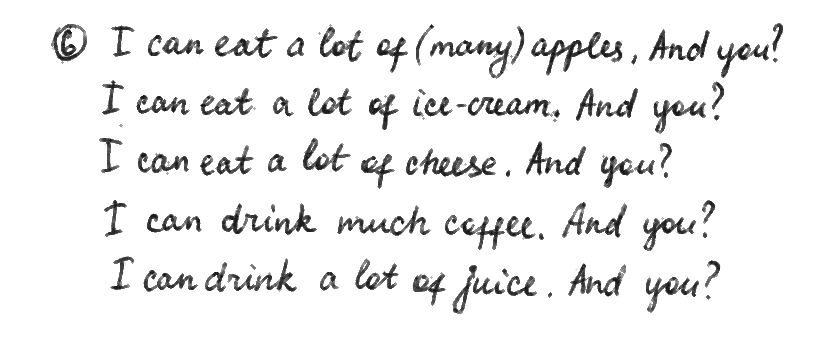 ⑥ I can eat a lot of (many) apples, And you?
I can eat a lot of ice-cream. And you?
I can eat a lot of cheese. And you?
I can drink much coffee. And you?
I can drink a lot of juice. And you?